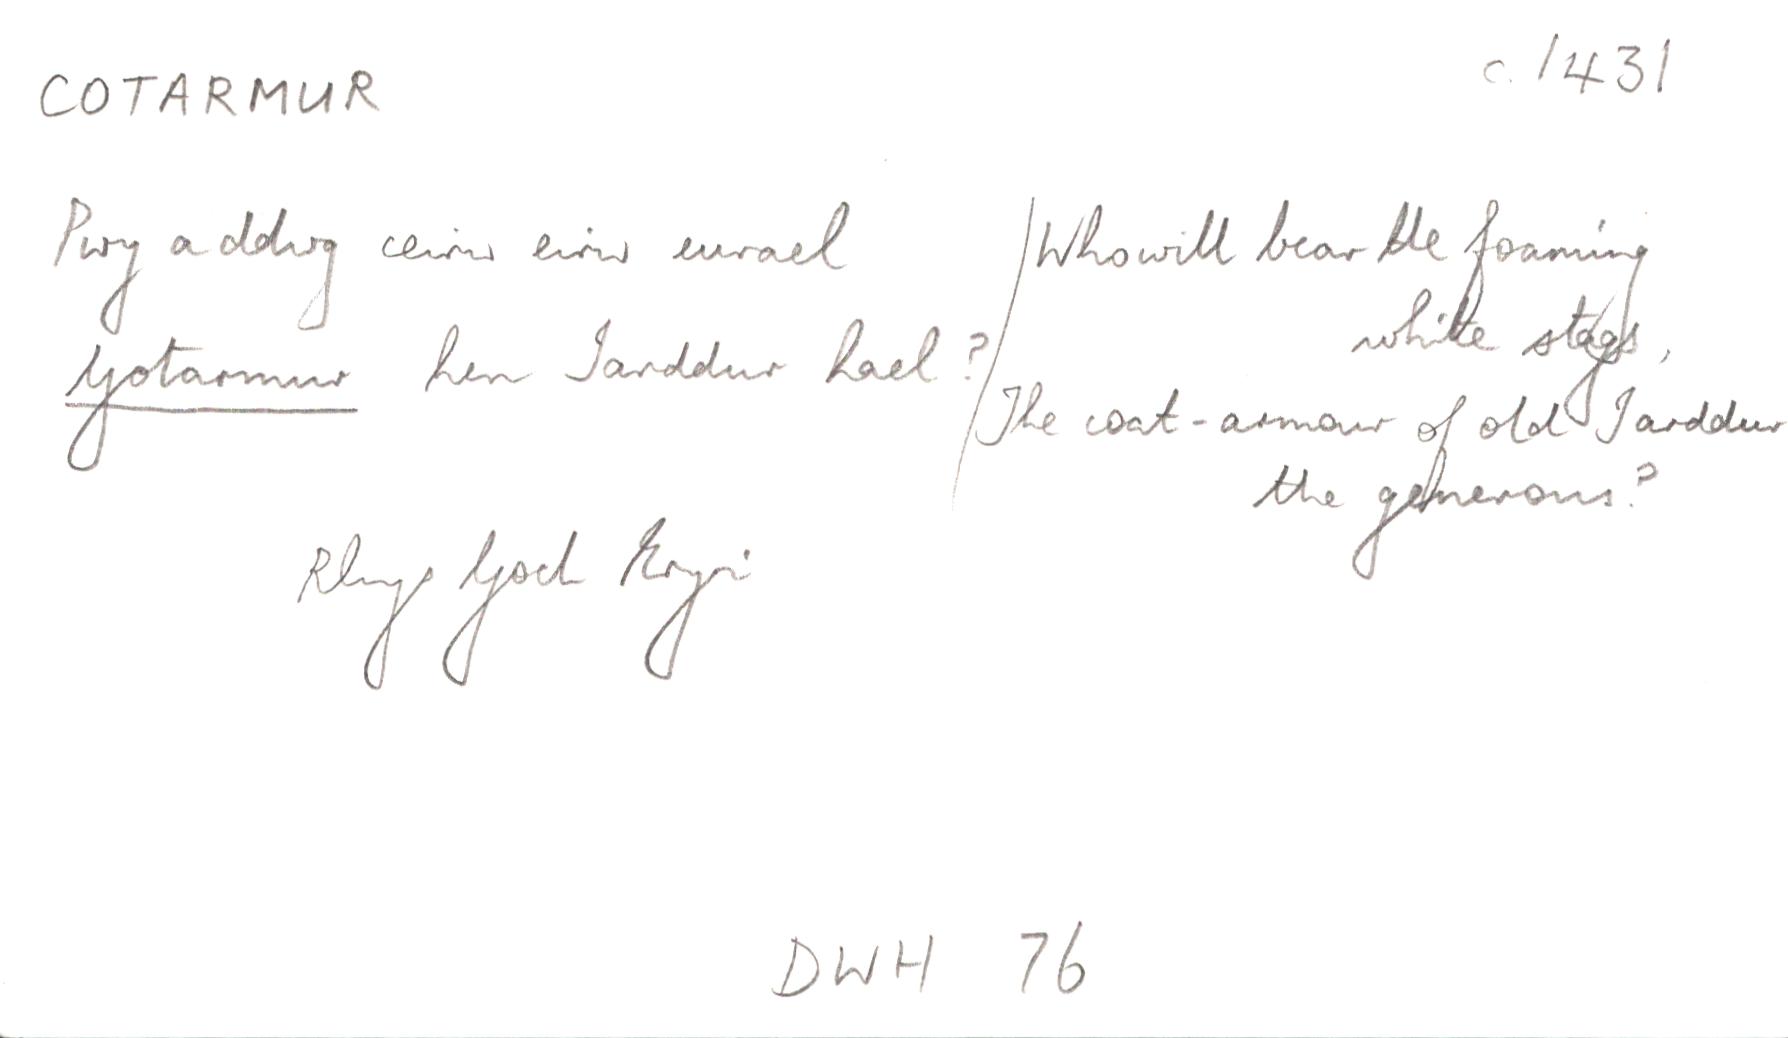 COTARMUR
c. 1431
Pwy a ddwg ceirw eirw eurael
Gotarmur hen Iarddur hael?
Who will bear the foaming
white stags,
The coat-armour of old Iarddur
the generous?
Rhys Goch Eryri
DWH 76